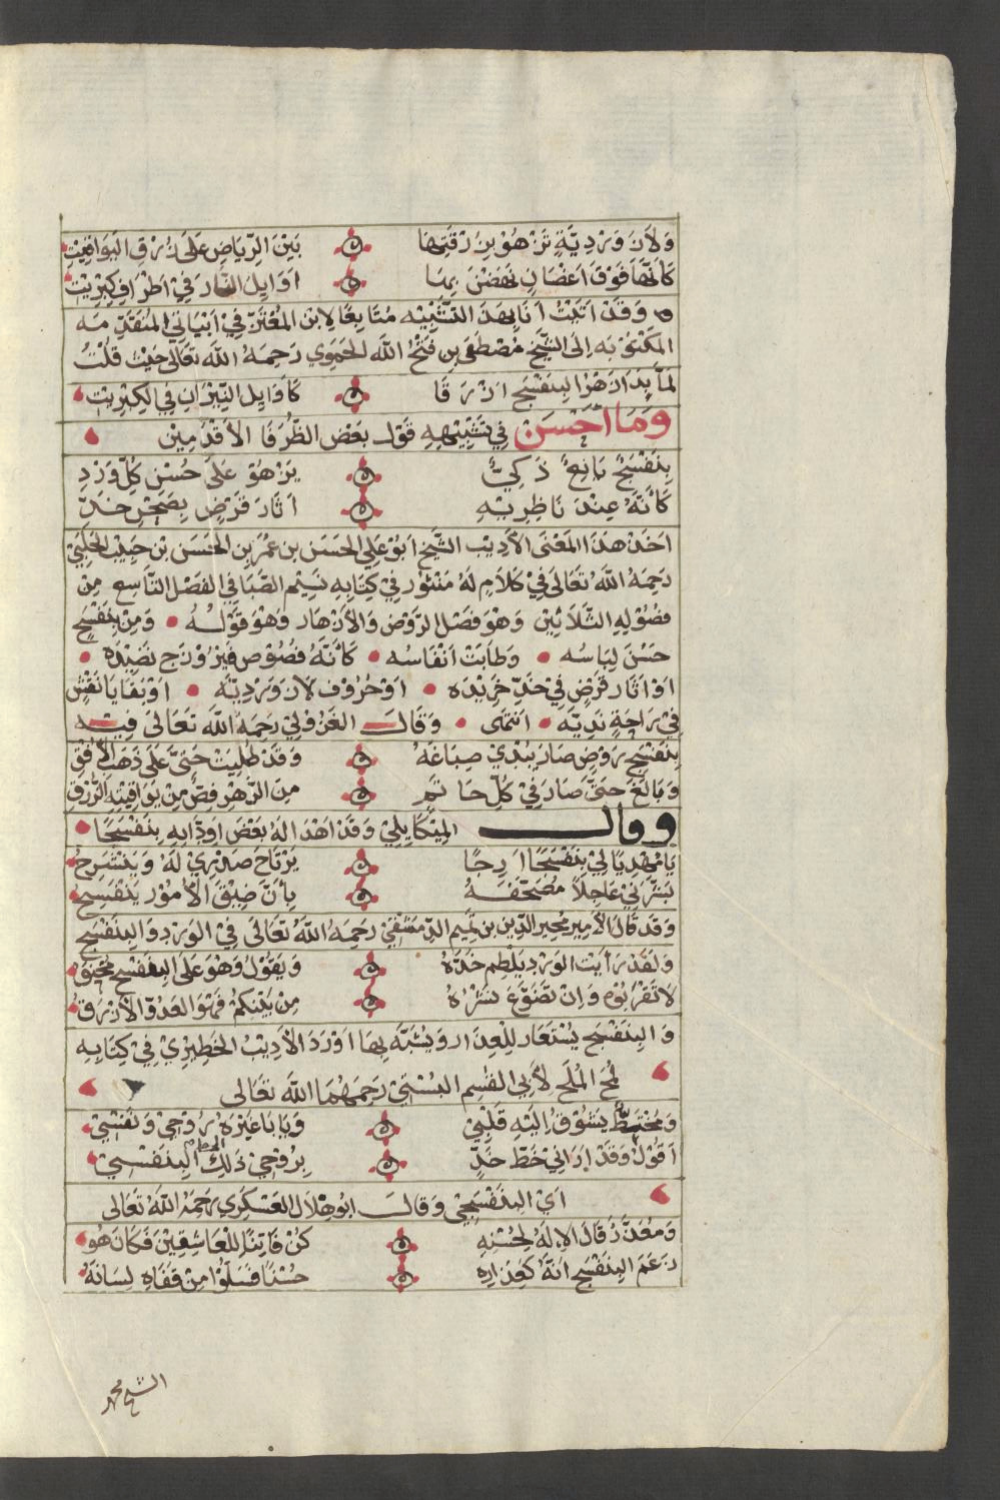 وَلَازَ وَرْدِيَّةٍ تَزْهُوْ بِزُرْقَتِهَا ۞ بَيْنَ الرِّيَاضِ عَلَى زُرْقِ الْيَوَاقِيْتِ
كَأَنَّهَا فَوْقَ اَغْصَانٍ نَهَضْنَ بِهَا ۞ اَوَايِلُ النَّارِ فِيْ اَطْرَافِ كِبْرِيْتِ
وَقَدْ اَتَيْتُ اَنَا بِهَذَ التَّشْبِيْه مُتَابِعًا لِابْنِ المُعْتَزّ فِيْ اَبْيَاتِي المُتَقَدِّمَه
المَكْتُوْبَه اِلَى الشَّيْخ مُصْطَفَى بن فَتْحُ الله الحَمَوِي رَحِمَهُ اللّه تَعَالَى حَيْث قُلْتُ
لَمَّا بَدَا زَهْرُ البِنَفْسَجِ اَزْرَقَا ۞ كَاَوَايِلِ النِّيْرَانِ فِي الكِبْرِيْتِ
وَمَا اَحْسَنَ فِي تَشْبِيْهِهِ قَوْلَ بَعْضِ الظُّرَفَا الأَقْدَمِيْن
بِنَفْسَجٌ يَانِعٌ ذَكِيٌّ ۞ يَزْهُوْ عَلَى حُسْنِ كُلِّ وَرْدِ
كَأَنَّهُ عِنْدَ نَاظِرِيْهِ ۞ اَثَارَ قَرْصٍ بِصَحْنِ خَدّ
اَخَذَ هَذَا المَعْنَى الأَدِيْب الشَّيْخ اَبُوْ عَلِي الحَسَن بن عُمَرِ بن الحَسَن بْن حَبِيْب الحَلَبِيّ
رَحِمَهُ اللّهُ تَعَالَى فِيْ كَلَامٍ لَهُ مَنْثُوْر فِيْ كِتَابِهِ نَسِيْم الصَّبَا فِي الفَصْل التَّاسِع مِنْ
فُصُوْلِهِ الثَّلَاثِيْن وَهْوَ فَصْل الرَّوْض وَالأَزْهَار وَهْوَ قَوْلُهُ • وَمِنْ بِنَفْسَجٍ
حَسُنَ لِبَاسُه • وَطَابَتْ اَنْفَاسُه • كَأَنَّهُ فُصُوْص فَيْرُوْزَج نَضِيْدَه •
اَوْ اَثَار قَرْصٍ فِيْ خَدِّ خَرِيْدَه • اَوْ حُرُوْف لَازَوَرْدِيَّه • اَوْ بَقَايَا نَقْشٍ
فِيْ رَاحَةٍ نَدِيَّه • اِنْتَهَى • وَقَالَ الغَزُوْلِيْ رَحِمَهُ اللّه تَعَالَى فِيْهِ
بِنَفْسَجُ رَوْضٍ صَارَ يُبْدِيْ صِبَاغَهُ ۞ وَقَدْ طُلِيَتْ حَتَّى عَلَى ذَهَبِ الأُفْقِ
وَبَالَغَ حَتَّى صَارَ فِيْ كُلِّ خَاتَمٍ ۞ مِنَ الزَّهْرِ فَصٌّ مِنْ يَوَاقِيْتِهِ الزُّرْقِ
وقال المِيْكَايِلِيْ وَقَدْ اَهْدَا لَهُ بَعْضَ اَوِدَّايِهِ بِنَفْسَجًا
يَا مُهْدِيًا لِيْ بِنَفْسَجًا اَرِجًا ۞ يَرْتَاحُ صَدْرِيْ لَهُ وَيَنْشَرِحُ
بَشَّرَنِيْ عَاجِلًا مُصَحَّفُهُ ۞ بِأَنَّ ضِيْقَ الأُمُوْرِ يَنْفَسِحُ
وَقَدْ قَالَ الأَمِيْر مُجِيْر الدِّيْن بن تَمِيْم الدِّمَشْقِيْ رَحِمَهُ اللّهُ تَعَالَى فِيْ الوَرْدِ وَالبِنَفْسَجِ
وَلَقَدْ رَأَيْتُ الوَرْدَ يَلْطِمُ خَدَّهُ ۞ وَيَقُوْلُ وَهْوَ عَلَى البِنَفْسَجِ مُحْنَقُ
لَا تَقْرَبُوْهُ وَاِنْ تَضَوَّعَ نَشْرُهُ ۞ مِنْ بَيْنِكُمْ فَهْوَ العَدُوُّ الأَزْرَقُ
وَالبِنَفْسَج يُسْتَعَار لِلْعِذَار وَيُشَبَّه بِهَا اَوْرَدَ الأَدِيْبُ الحَظِيْرِيْ فِيْ كِتَابِهِ
لُمَحُ المُلَح لِأَبِي القَسِم البُسْتِيْ رَحِمَهُمَا اللَّه تَعَالَى
وَمُخْتَطٌّ يَشُوْقُ اِلَيْهِ قَلْبِيْ ۞ وَيَابَا غَيْرَهُ رُوْحِيْ وَنَفْسِيْ
اَقُوْلُ وَقَدْ اَرَانِيْ خَطَّ خَدٍّ ۞ بِرُوْحِيْ ذَلِكَ الخَطُّ البِنَفْسِيْ
اَيِ البِنَفْسَجِيْ وَقَالَ اَبُوْ هِلَال العَسْكَرِيْ رَحِمَهُ اللّهُ تَعَالَى
وَمُعَذَّرٍ قَالَ الاِلَهُ لِحُسْنِهِ ۞ كُنْ فَاتِنًا لِلْعَاشِقِيْنَ فَكَانَهُو
زَعَمَ البِنَفْسَجُ اَنَّهُ كَعِذَارِهِ ۞ حُسْنًا فَسَلُّوْا مِنْ قَفَاهِ لِسَانَهُ
الشيخ محمد